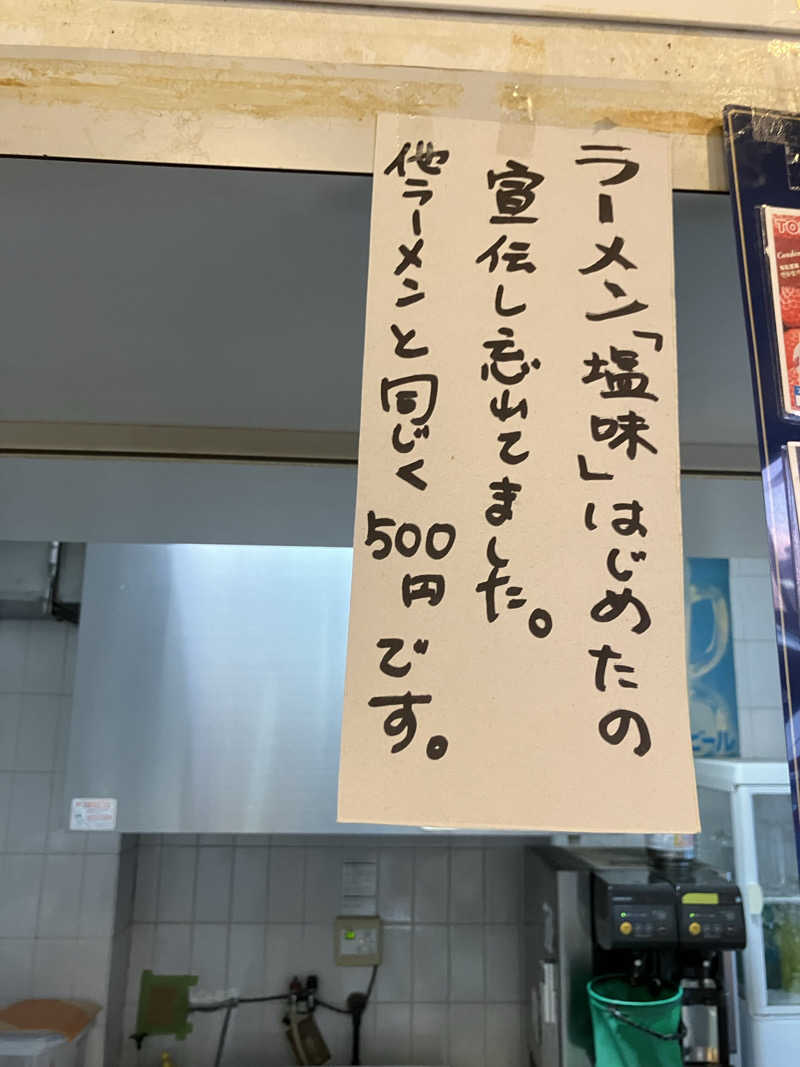 ラーメン「塩味」はじめたの
宣伝し忘れてました。
他ラーメンと同じく500円です。
ビール